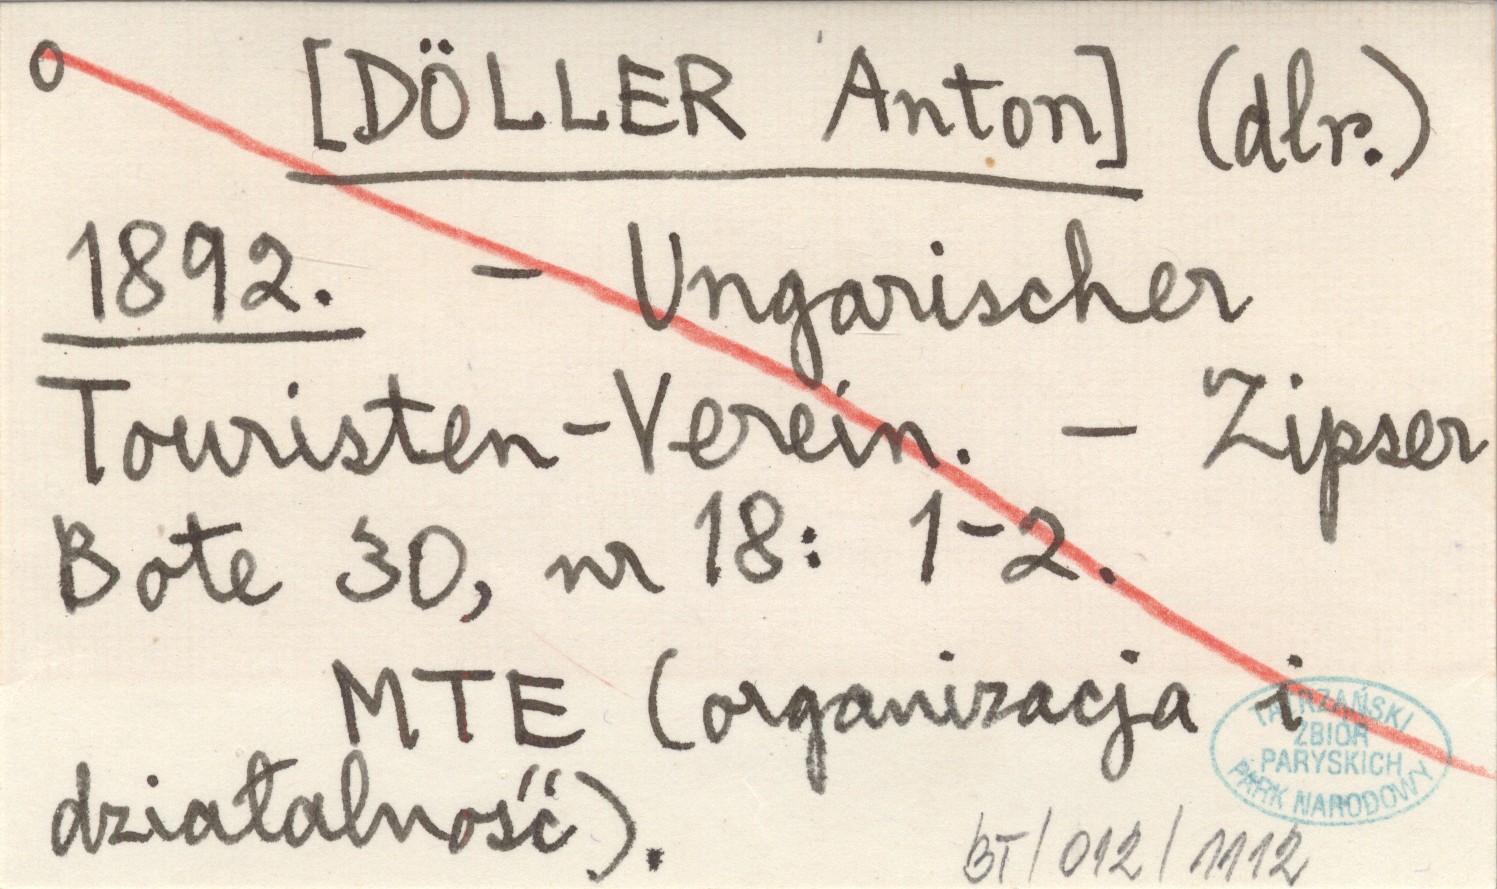 o [DÖLLER Anton] (dlr.)
1892. – Ungarischer
Touristen-Verein. – Zipser
Bote 30, nr 18: 1-2.
MTE (organizacja i
działalność).
TATRZAŃSKI
ZBIÓR
PARYSKICH
PARK NARODOWY
BT/012/1112